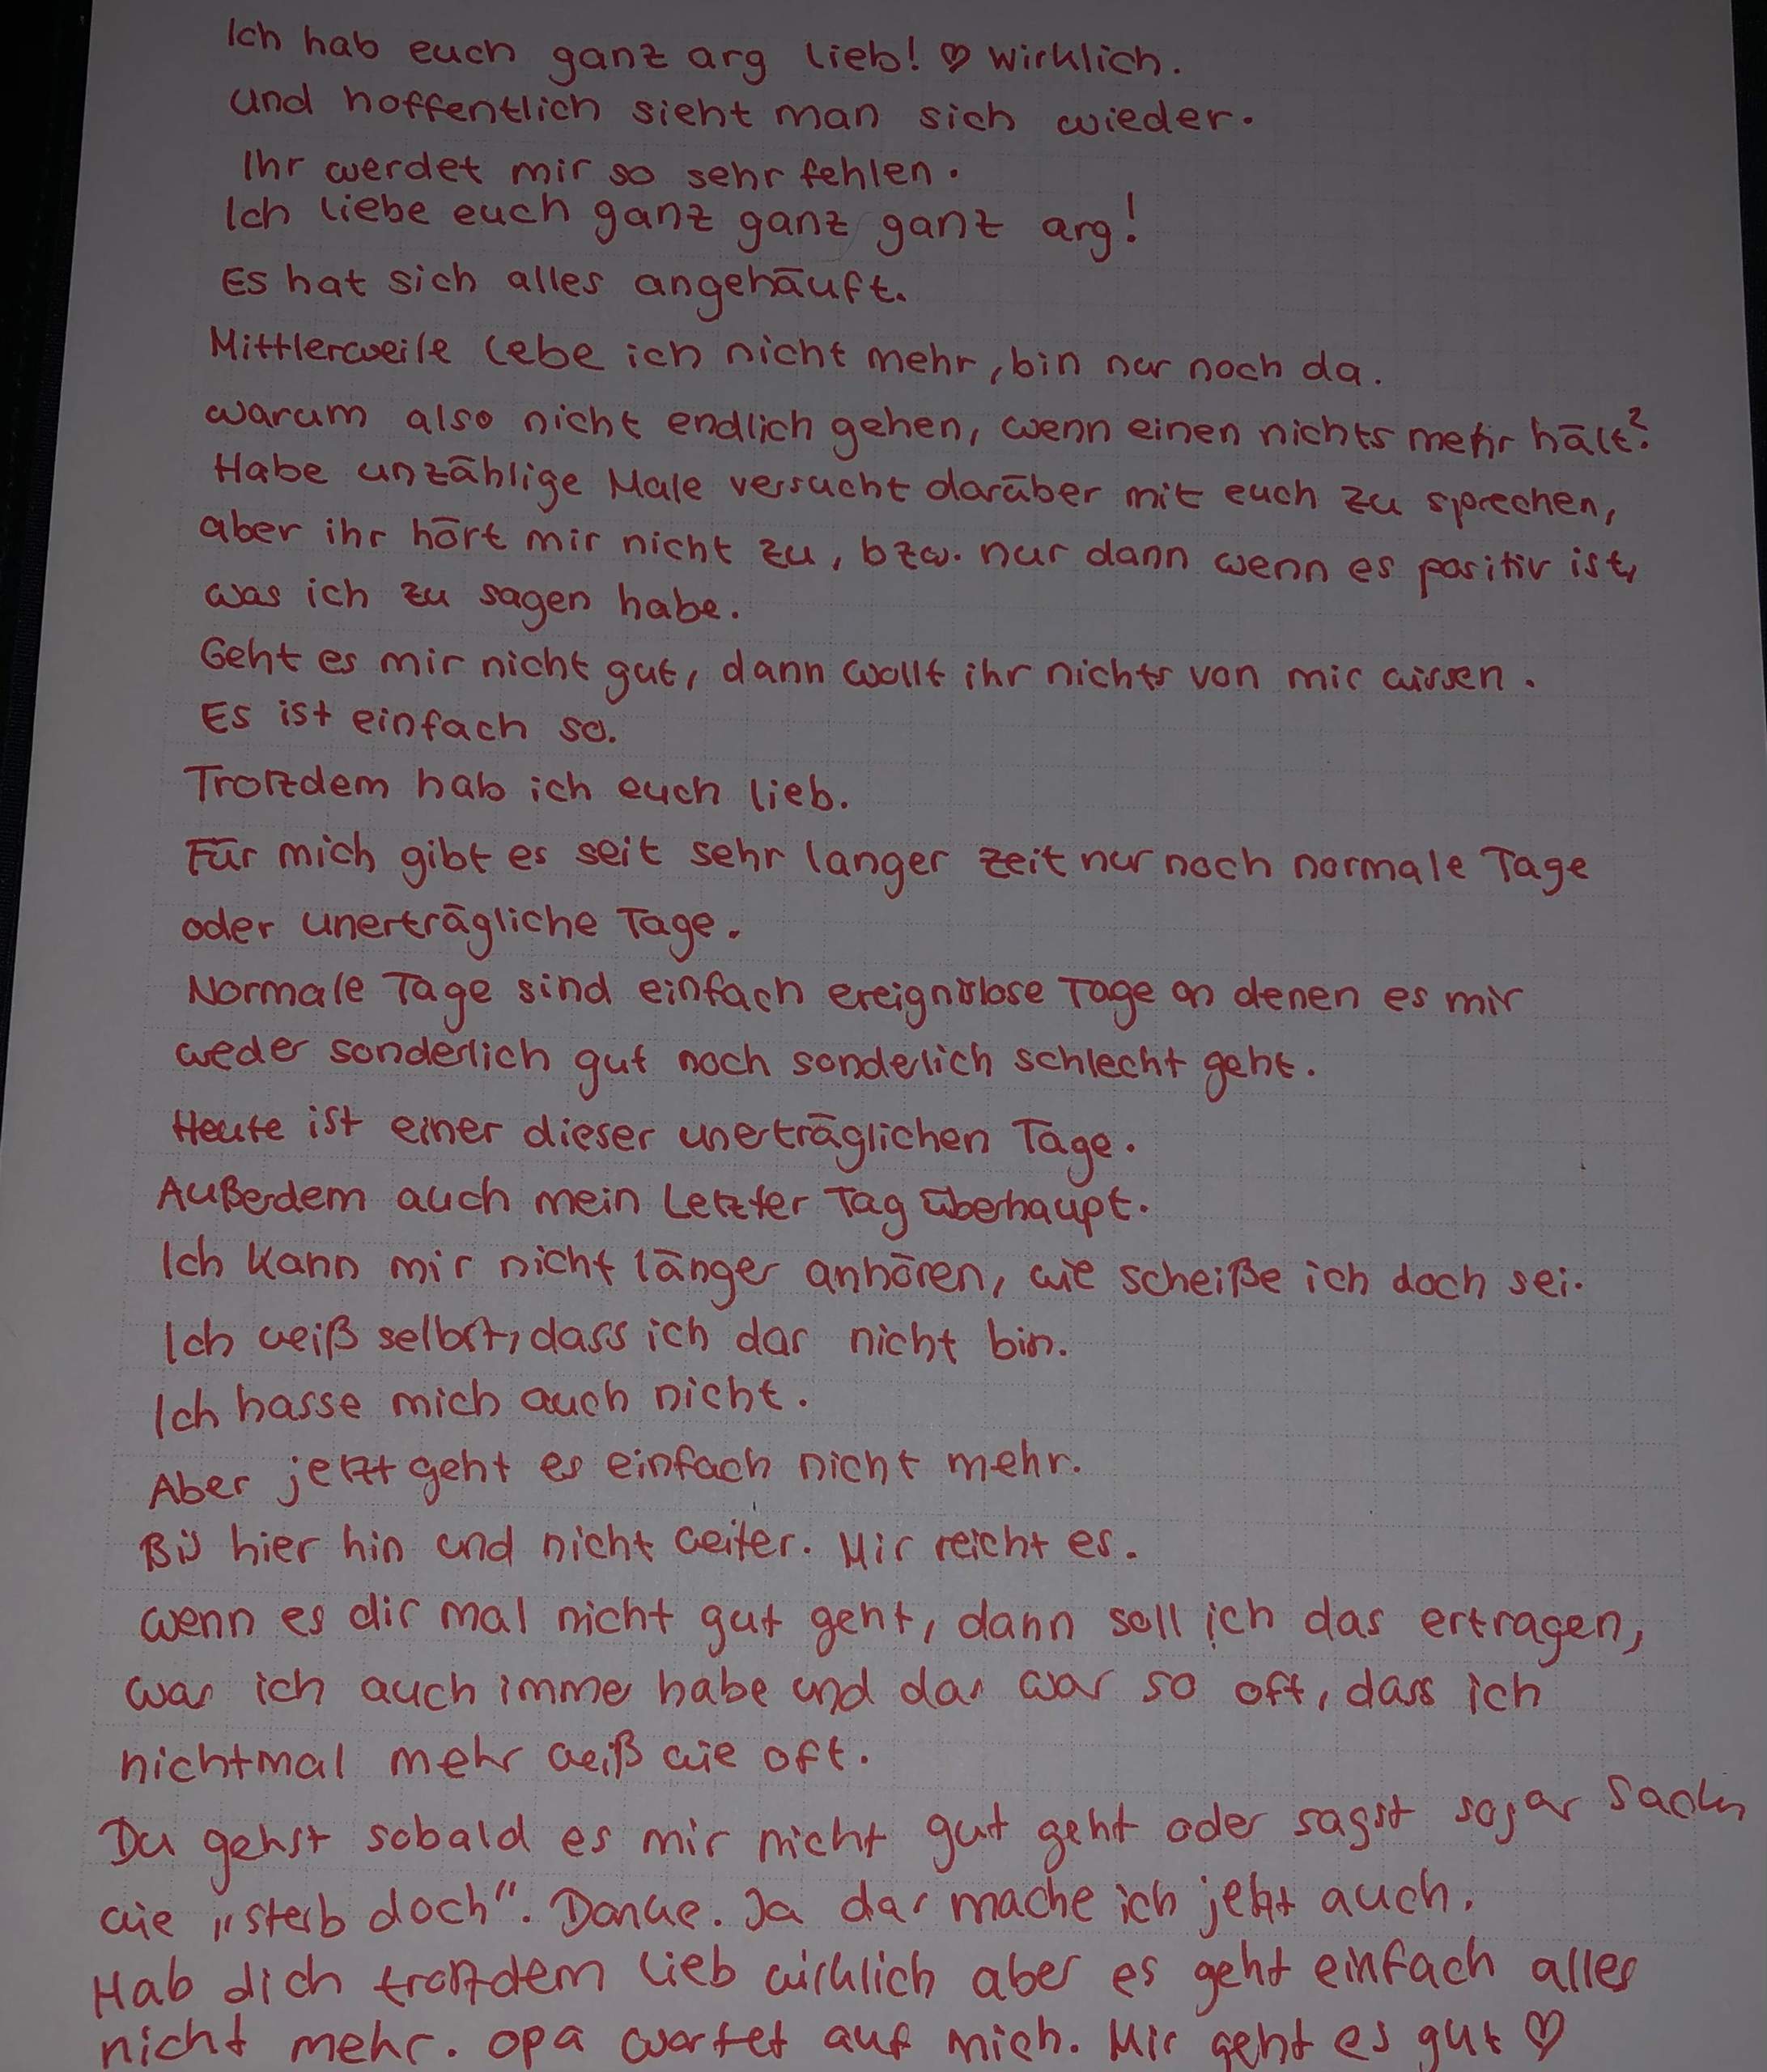 Ich hab euch ganz arg lieb! ♡ wirklich.
und hoffentlich sieht man sich wieder.
Ihr werdet mir so sehr fehlen.
Ich liebe euch ganz ganz ganz arg!
Es hat sich alles angehäuft.
Mittlerweile lebe ich nicht mehr, bin nur noch da.
warum also nicht endlich gehen, wenn einen nichts mehr hält?
Habe unzählige Male versucht darüber mit euch zu sprechen,
aber ihr hört mir nicht zu, bzw. nur dann wenn es positiv ist,
was ich zu sagen habe.
Geht es mir nicht gut, dann wollt ihr nichts von mir wissen.
Es ist einfach so.
Trotzdem hab ich euch lieb.
Für mich gibt es seit sehr langer Zeit nur noch normale Tage
oder unerträgliche Tage.
Normale Tage sind einfach ereignislose Tage an denen es mir
weder sonderlich gut noch sonderlich schlecht geht.
Heute ist einer dieser unerträglichen Tage.
Außerdem auch mein Letzter Tag überhaupt.
Ich kann mir nicht länger anhören, wie scheiße ich doch sei.
Ich weiß selbst, dass ich das nicht bin.
Ich hasse mich auch nicht.
Aber jetzt geht es einfach nicht mehr.
Bis hier hin und nicht weiter. Mir reicht es.
wenn es dir mal nicht gut geht, dann soll ich das ertragen,
was ich auch imme habe und das war so oft, dass ich
nichtmal mehr weiß wie oft.
Du gehst sobald es mir nicht gut geht oder sagst sogar Sachen
wie „sterb doch". Danke. Ja das mache ich jetzt auch.
Hab dich trotzdem lieb wirklich aber es geht einfach alles
nicht mehr. Opa wartet auf mich. Mir geht es gut ♡